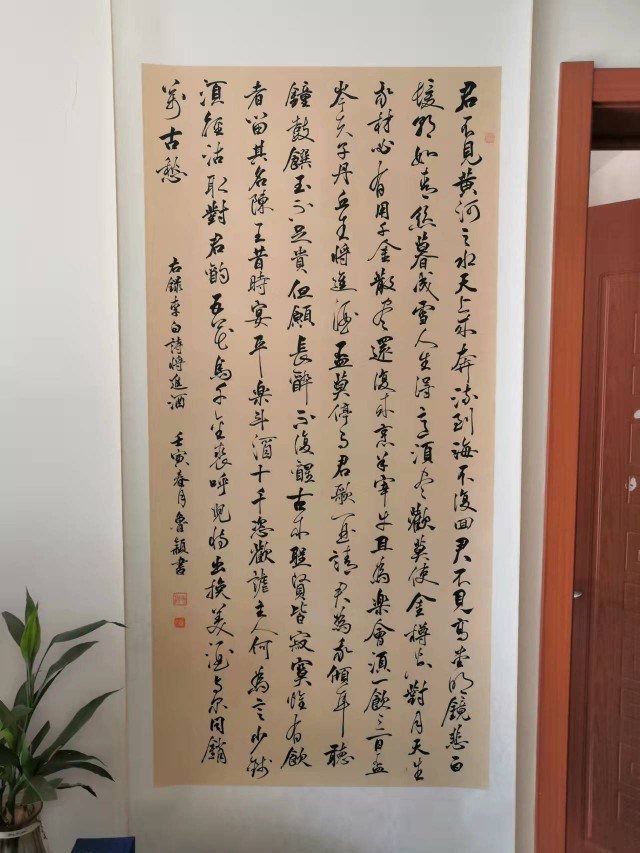 君不見黃河之水天上來奔流到海不復回君不見高堂明鏡悲白
髮朝如青絲暮成雪人生得意須盡歡莫使金樽空對月天生
我材必有用千金散盡還復來烹羊宰牛且為樂會須一飲三百盃
岑夫子丹丘生將進酒盃莫停与君歌一曲請君為我傾耳聽
鐘鼓饌玉不足貴但願長醉不復醒古來聖賢皆寂寞惟有飲
者留其名陳王昔時宴平樂斗酒十千恣歡謔主人何為言少錢
須徑沽取對君酌五花馬千金裘呼兒将出換美酒与尔同銷
萬古愁
右録李白詩將進酒 壬寅春月魯穎書